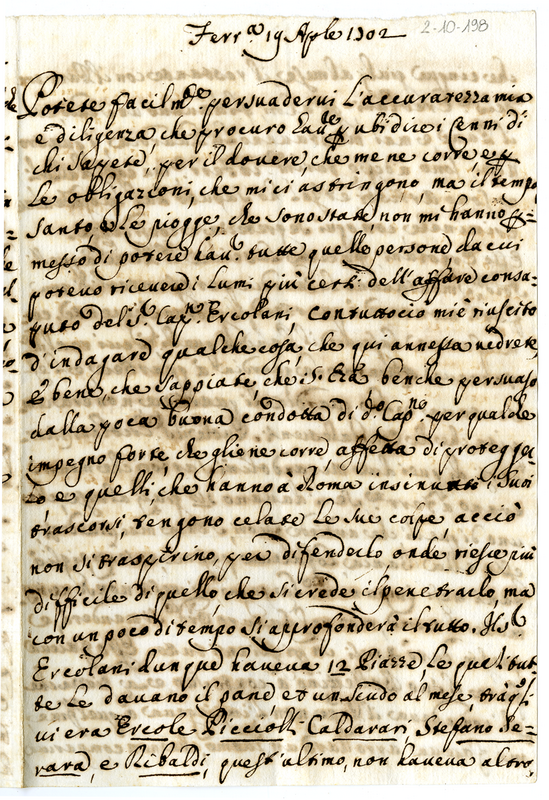 Ferr.ª 19 Aple 1702
2-10-198
Potete facilm.te persuadervi l'accuratezza mia
e diligenza, che procuro hav.e p ubidire i cenni di
chi sapete, per il dovere, che me ne corre, e p
le obligazioni, che mi ci astringono, ma il tempo
santo, e le piogge, che sono state, non mi hanno p=
messo di potere hav.e tutte quelle persone da cui
potevo ricevere i lumi più certi dell'affare consa=
puto del S.r Cap.no Ercolani. Contuttociò mi è riuscito
d'indagare qualche cosa, che qui annessa vedrete,
è bene, che sappiate, che S. Em.a benche persuaso
dalla poca buona condotta di d.o Cap.no per qualche
impegno forte che gliene corre affetta di protegger=
lo e quelli, che hanno à Roma insinuati i suoi
trascorsi, tengono celate le sue colpe, acciò
non si traspirino, per difenderlo, onde riesce più
difficile di quello che si crede il penetrarlo, ma
con un poco di tempo si approfonderà il tutto. Il S.r
Ercolani dunque haveva 12 Piazze, le quali tut=
te le davano il pane et un scudo al mese, trà q.sti
vi era Ercole Piccioli Caldarari, Stefano Ser=
rara, e Ribaldi, quest'ultimo, non haveva altro,